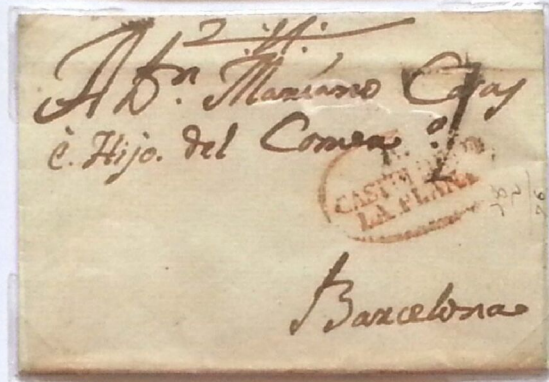 A Dn. Mariano Casas
è. Hijo. del Comercº.
CASTELLON
LA PLANA
Barcelona